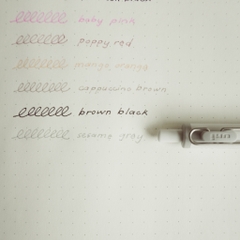 baby pink
poppy red
mango orange
cappuccino brown
brown black
sesame gray